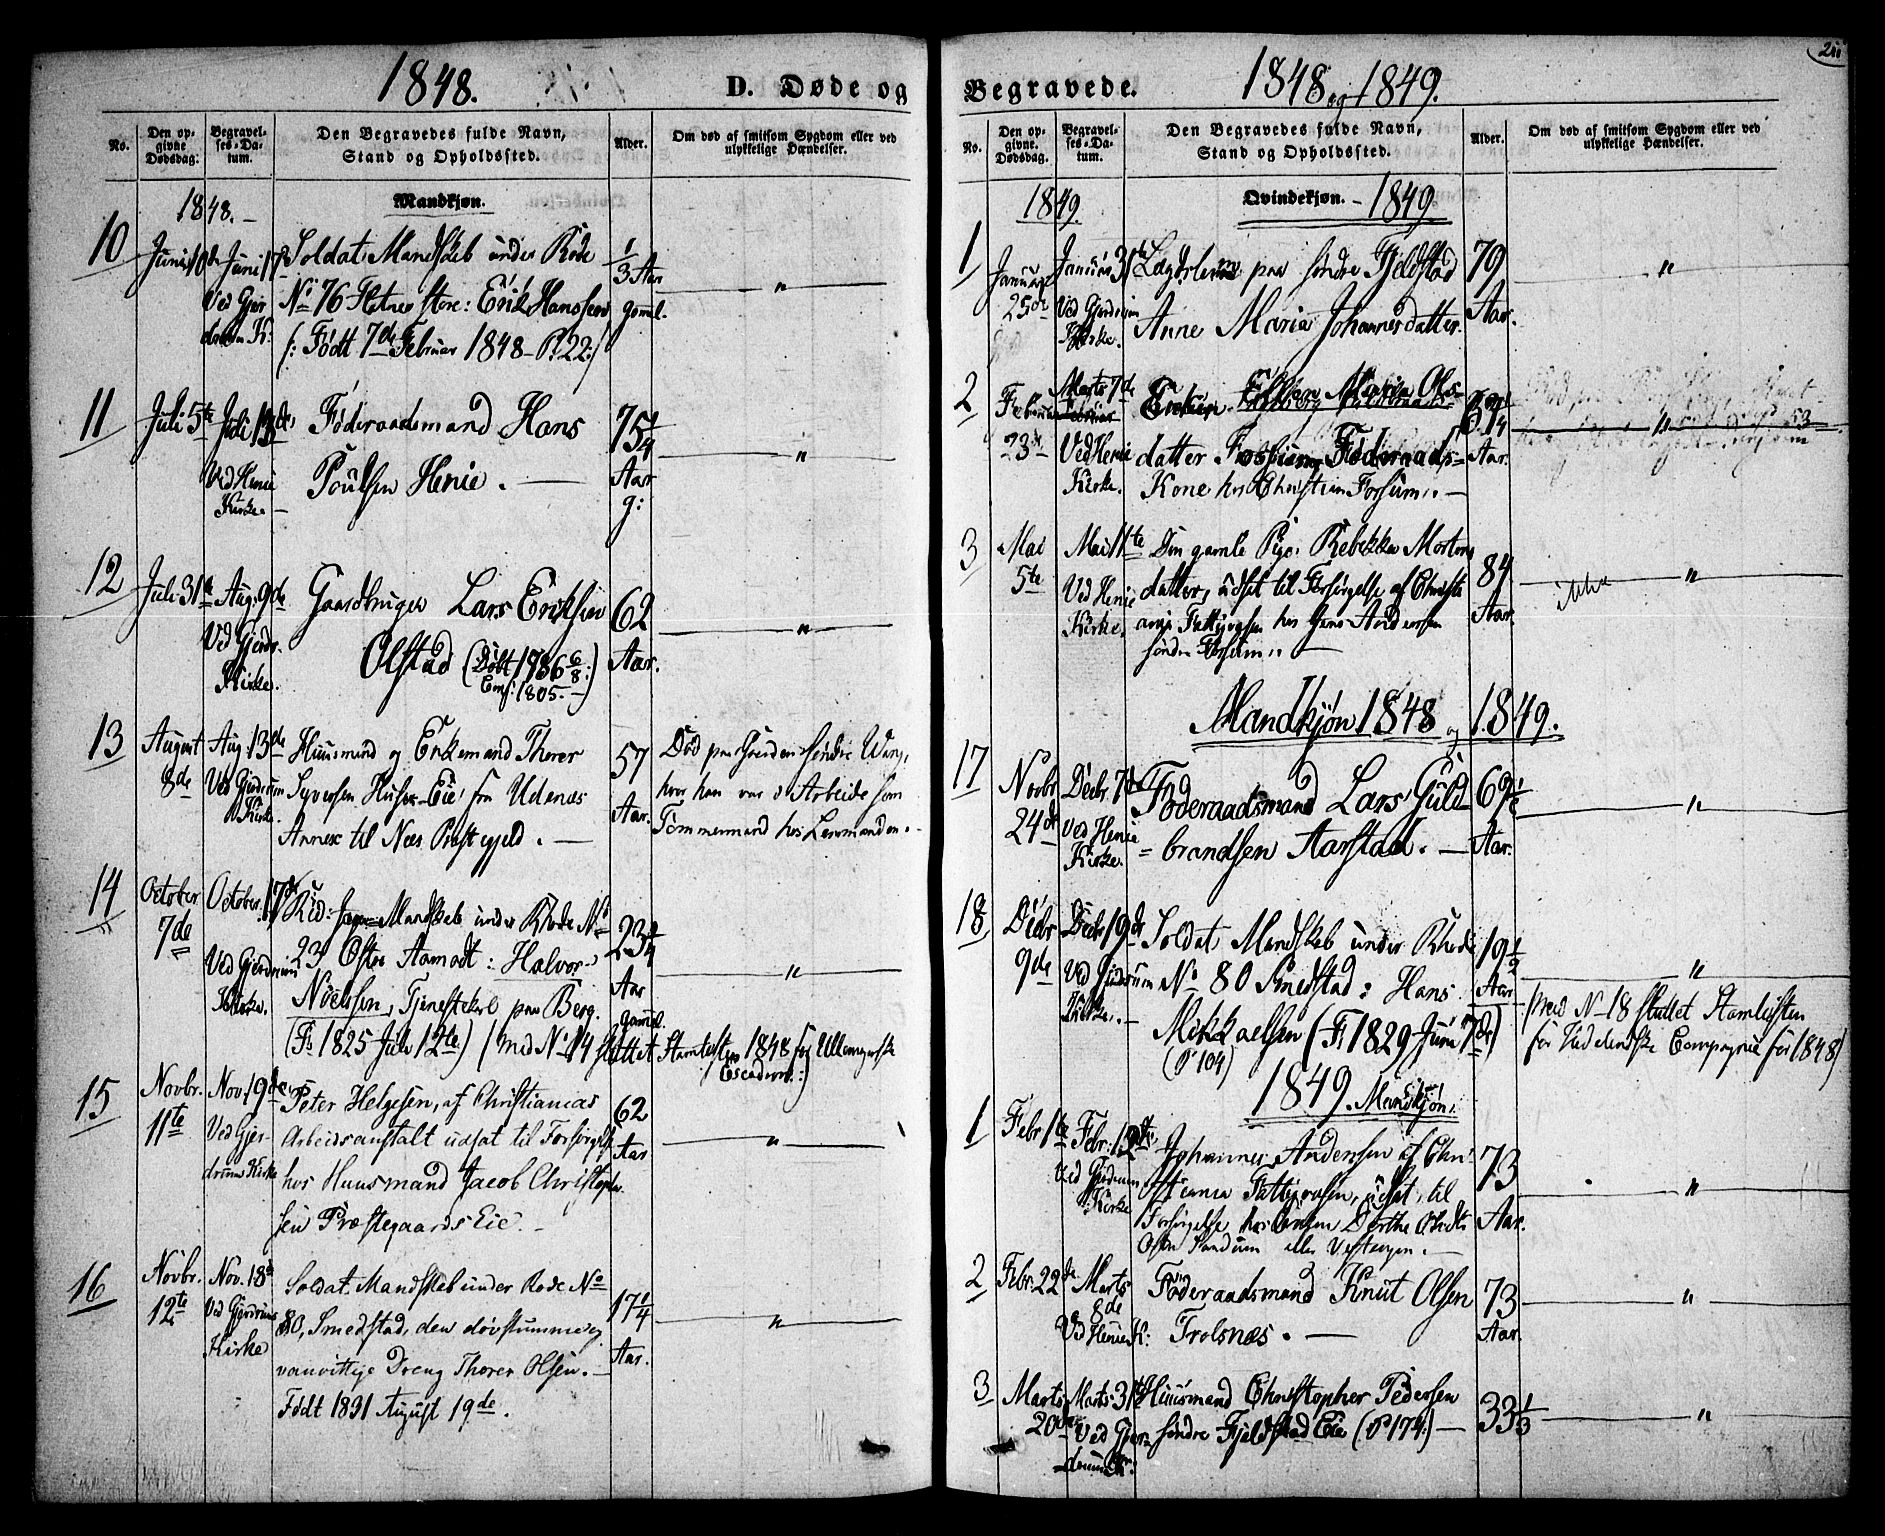 1848.
D. Døde og
No.
Den op-
givne
Dødsdag:
Begravel-
ses-Da-
tum.
Den Begravedes fulde Navn,
Stand og Opholdssted.
Alder.
Om død af smitsom Sygdom eller ved
ulykkelige Hændelser.
1848.
Mandkjøn.
10
Juni 10de
Juni 17de
Ved Gjer
drum K:
Soldat Mandskab under Rode
No 76 Flatner store: Erik Hanssen
(: Født 7de Februar 1848 - P. 22:)
1/3 Aar
gaml.
"
11
Juli 5te
Juli 13de
Ved Henie
Kirke.
Føderaadsmand Hans
Poulsen Henie. —
75 1/4
Aar
g:
"
12
Juli 31te
Aug: 9de
Ved Gjerdr.
Kirke.
Gaardbruger Lars Eriksen
Olstad (Døbt 1786 6/8:)
Conf: 1805. —
62
Aar.
"
13
August
8de
Aug: 13de
Ved Gjerdrum
Kirke.
Huusmand og Enkemand Thorer
Syversen Eie fra Udenæs
Annex til Næs Præstegjeld. —
57
Aar.
Død paa Gaarden søndre
hvor han var i Arbeide som
Tømmermand hos Lensmanden.
14
October
7de
October 17de
Ved Gjerdrum
Kirke.
Rid: Mandskab under Rode No
23 Østre Aamodt: Halvor
Nielssen, Tjenestekarl paa Berg.
(F: 1825 Juli 12te) (med No 14 sluttet Stamlisten 1848 for
Escadron.:)
23 1/4
Aar
gammel.
"
15
Novbr.
11te
Nov. 19de
Ved Gjer-
drum Kirke
Peter Helgesen, af Christianias
Arbeidsanstalt udsat til Forsørgelse
hos Huusmand Jacob Christophe
sen Præstegaards Eie. —
62
Aar
"
16
Novbr.
12te
Nov. 18de
Ved Gjerdrums
Kirke
Soldat Mandskab under Rode No
80, Smedstad, den døvstumme og
vanvittige Dreng Thorer Olsen. —
Født 1831 August 19de.
17 1/4
Aar.
"
Begravede.
1848 og 1849.
No.
Den op-
givne.
Dødsdag.
Begravel-
ses-Da-
tum.
Den Begravedes fulde Navn,
Stand og Opholdssted.
Alder.
Om død af smitsom Sygdom eller ved
ulykkelige Hændelser.
1849.
Qvindekjøn. - 1849
1
Januar
25de
Januar 31te
Ved Gjerdrum
Kirke.
Lægdslem paa søndre Fjeldstad
Anne Maria Johannesdatter.
79
Aar.
"
2
Februar
23de
Marts 7de
Ved Henie
Kirke.
Maria Ols-
datter Fossum Føderaads-
Kone hos Christian Forsum. —
Aar.
"
3
Mai
5te
Mai 11te
Ved Henie
Kirke.
Den gamle Pige Rebekka Mortens
datter, udsat til Forsørgelse af Christi
ania Fattigvæsen hos Hans Andersen
søndre Forsum. —
84
Aar.
"
Mandkjøn 1848 og 1849.
17
Novbr
24de
Decbr. 7de
Ved Henie
Kirke.
Føderaadsmand Lars Guld
= brandsen Aarstad. —
69 1/2
Aar.
"
18
Decbr
9de
Decbr 19de
Ved Gjerdrum
Kirke. —
Soldat Mandskab under Rode
No 80 Smedstad: Hans
Mikkaelsen (F: 1829 Juni 7de)
(P 104)
19 1/2
Aar
"
(med No 18 sluttet Stamlisten
for Companie for 1848)
1849. Mandkjøn.
1
Febr 1te
Febr: 12te
Ved Gjerdrum
Kirke
Johannes Andersen af Chri
stiania Fattigvæsen, udsat til
Forsørgelse hos Enken Dorthe
eller
73
Aar.
"
2
Febr. 22de
Marts
8de
Ved Henie K:
Føderaadsmand Knut Olsen
Trolsnæs. —
73
Aar.
"
3
Marts
20de
Marts 31te
Ved Gjer-
drum K:
Huusmand Christopher Pedersen
søndre Fjeldstad Eie (P 174:) —
33 1/3
"